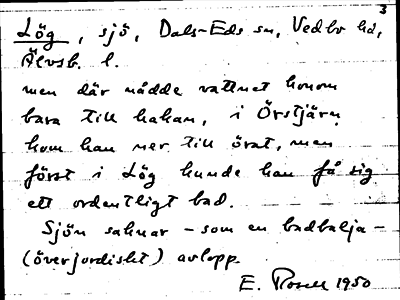 3
Lög, sjö, Dals-Eds sn, Vedbo hd,
Älvsb. l.
men där nådde vattnet honom
bara till hakan, i Örstjärn
kom han ner till örat, men
först i Lög kunde han få sig
ett ordentligt bad.
Sjön saknar - som en badbalja -
(överjordiskt) avlopp.
E. Rosell 1950